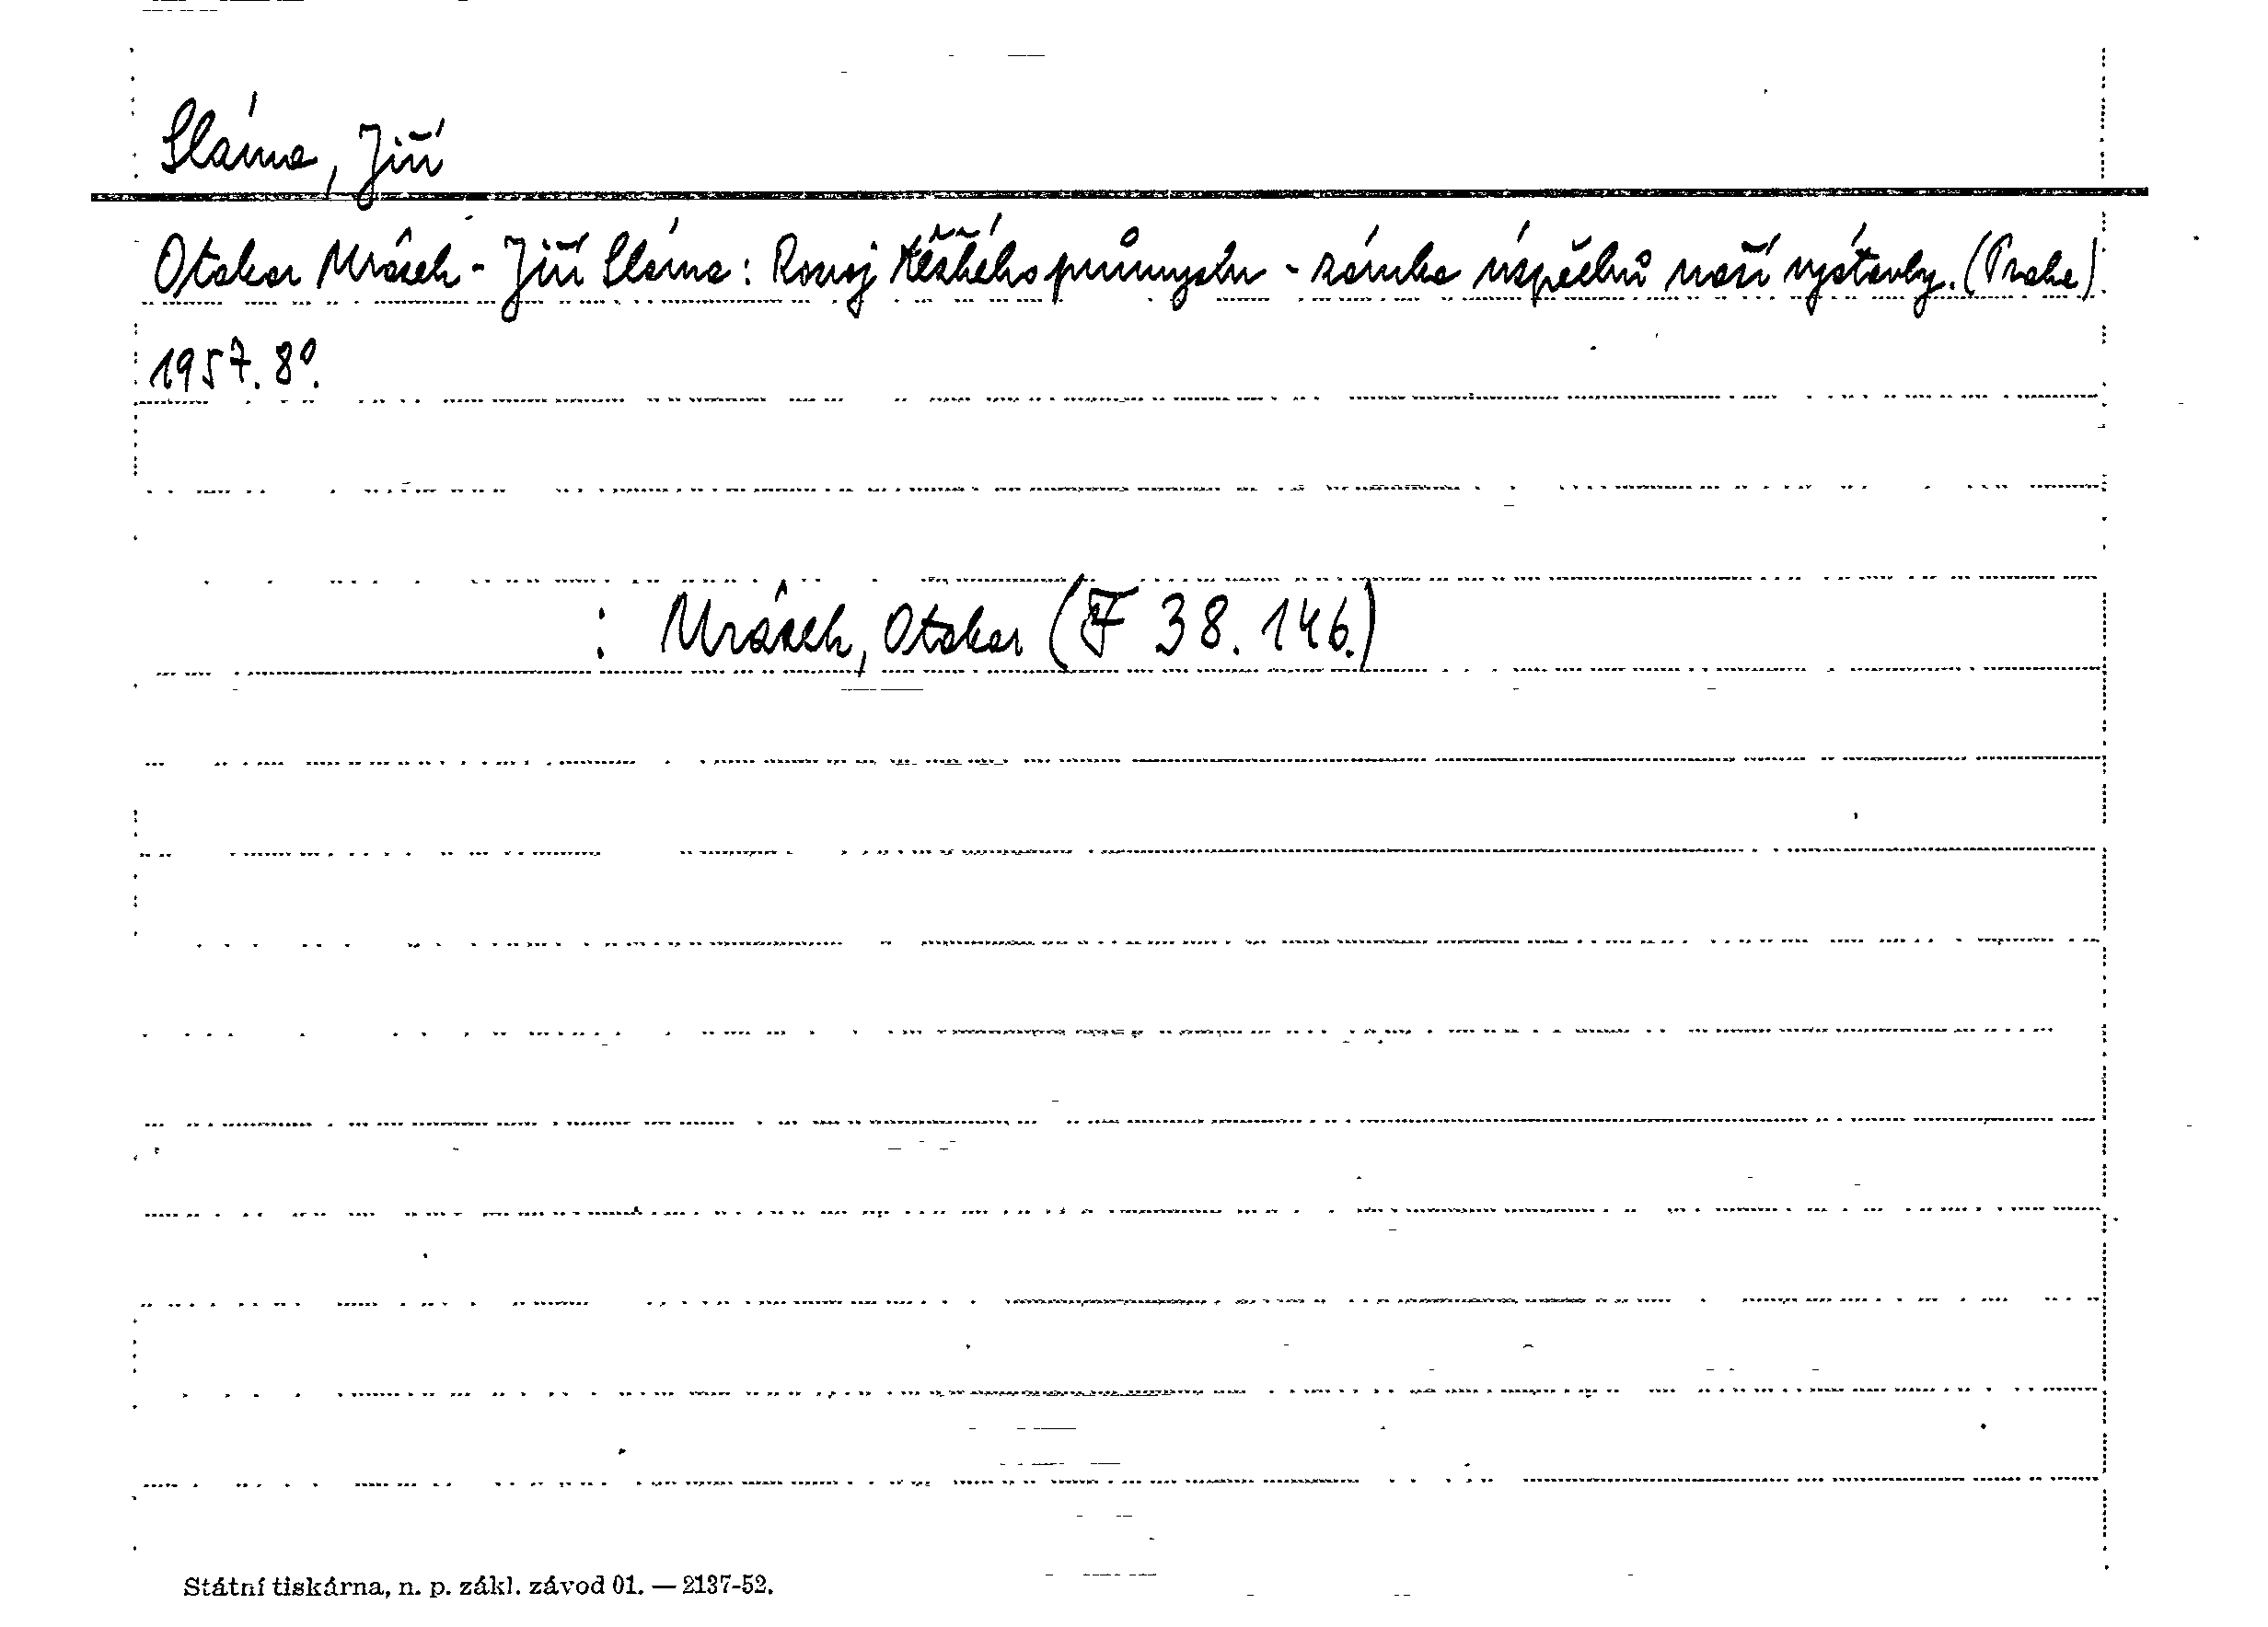 Sláma, Jiří
Otakar Mrázek - Jiří Sláma: Rozvoj těžkého průmyslu - záruka úspěchů naší výstavby. (Praha)
1957. 8°.
: Mrázek, Otakar (F 38.146.)
Státní tiskárna, n. p. zákl. závod 01. — 2137-52.